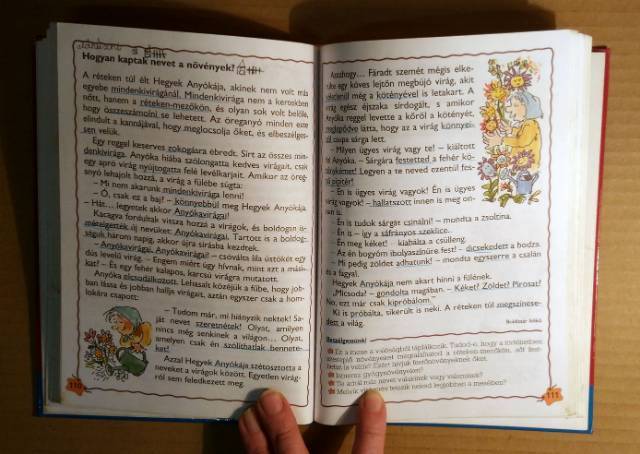 Hogyan kaptak nevet a növények?
A réteken túl élt Hegyek Anyókája, akinek nem volt más
egyebe mindenkivirágánál. Mindenkivirága nem a kertekben
nőtt, hanem a réteken-mezőkön, és olyan sok volt belőle,
hogy összeszámolni se lehetett. Az öreganyó minden este
elindult a kannájával, hogy meglocsolja őket, és elbeszélges-
sen velük.
Egy reggel keserves zokogásra ébredt. Sírt az összes min-
denkivirága. Anyóka hiába szólongatta kedves virágait, csak
egy apró virág nyújtogatta felé levélkarjait. Amikor az öreg-
anyó lehajolt hozzá, a virág a fülébe súgta:
– Mi nem akarunk mindenkivirága lenni!
– Ó, csak ez a baj? – könnyebbül meg Hegyek Anyókája
– Hát... legyetek akkor Anyókavirágai!
Kacagva fordultak vissza hozzá a virágok, és boldogan
új nevüket: Anyókavirágai. Tartott is a boldog-
ságuk három napig, akkor újra sírásba kezdtek.
– Anyókavirágai, Anyókavirágai? – csóválta lila üstökét egy
dús levelű virág. – Engem miért úgy hívnak, mint azt a mási-
kat? – És egy fehér kalapos, karcsú virágra mutatott.
Anyóka elcsodálkozott. Lehasalt közéjük a fűbe, hogy job-
ban lássa és jobban hallja virágait, aztán egyszer csak a hom-
lokára csapott:
– Tudom már, mi hiányzik nektek! Sa-
ját nevet szeretnétek! Olyat, amilyen
nincs még senkinek a világon... Olyat,
amelyen csak én szólíthatlak bennete-
ket!
Azzal Hegyek Anyókája szétosztotta a
neveket a virágok között. Egyetlen virág-
ról sem feledkezett meg.
110
Azazhogy... Fáradt szemét mégis elke-
rülte egy köves lejtőn megbújó virág, akit
még a kötényével is letakart. A
virág egész éjszaka sírdogált, s amikor
Anyóka reggel levette a kőről a kötényét,
meglepődve látta, hogy az a virág könnyei-
től csupa sárga lett.
– Milyen ügyes virág vagy te! – kiáltott
fel Anyóka. – Sárgára festetted a fehér kö-
ténykémet! Legyen a te neved ezentúl fes-
tő pipitér!
– Én is ügyes virág vagyok! Én is ügyes
virág vagyok! – hallatszott innen is meg on-
nan is.
– Én is tudok sárgát csinálni! – mondta a zsoltina.
– Én is – így a sáfrányos szeklice.
– Én meg kéket! – kiabálta a csülleng.
– Az én bogyóm ibolyaszínűre fest! – dicsekedett a bodza.
– Mi pedig zöldet adhatunk! – mondta egyszerre a csalán
és a fagyal.
Hegyek Anyókája nem akart hinni a fülének.
„Micsoda? – gondolta magában. – Kéket? Zöldet? Pirosat?
No, ezt már csak kipróbálom."
Ki is próbálta, sikerült is neki. A réteken túl megszínese-
dett a világ.
Boldizsár Ildikó
Beszélgessünk!
Ismersz gyógynövényeket?
Te adtál már nevet valakinek vagy valaminek?
Melyik virág tetszik neked legjobban a mesében?
111